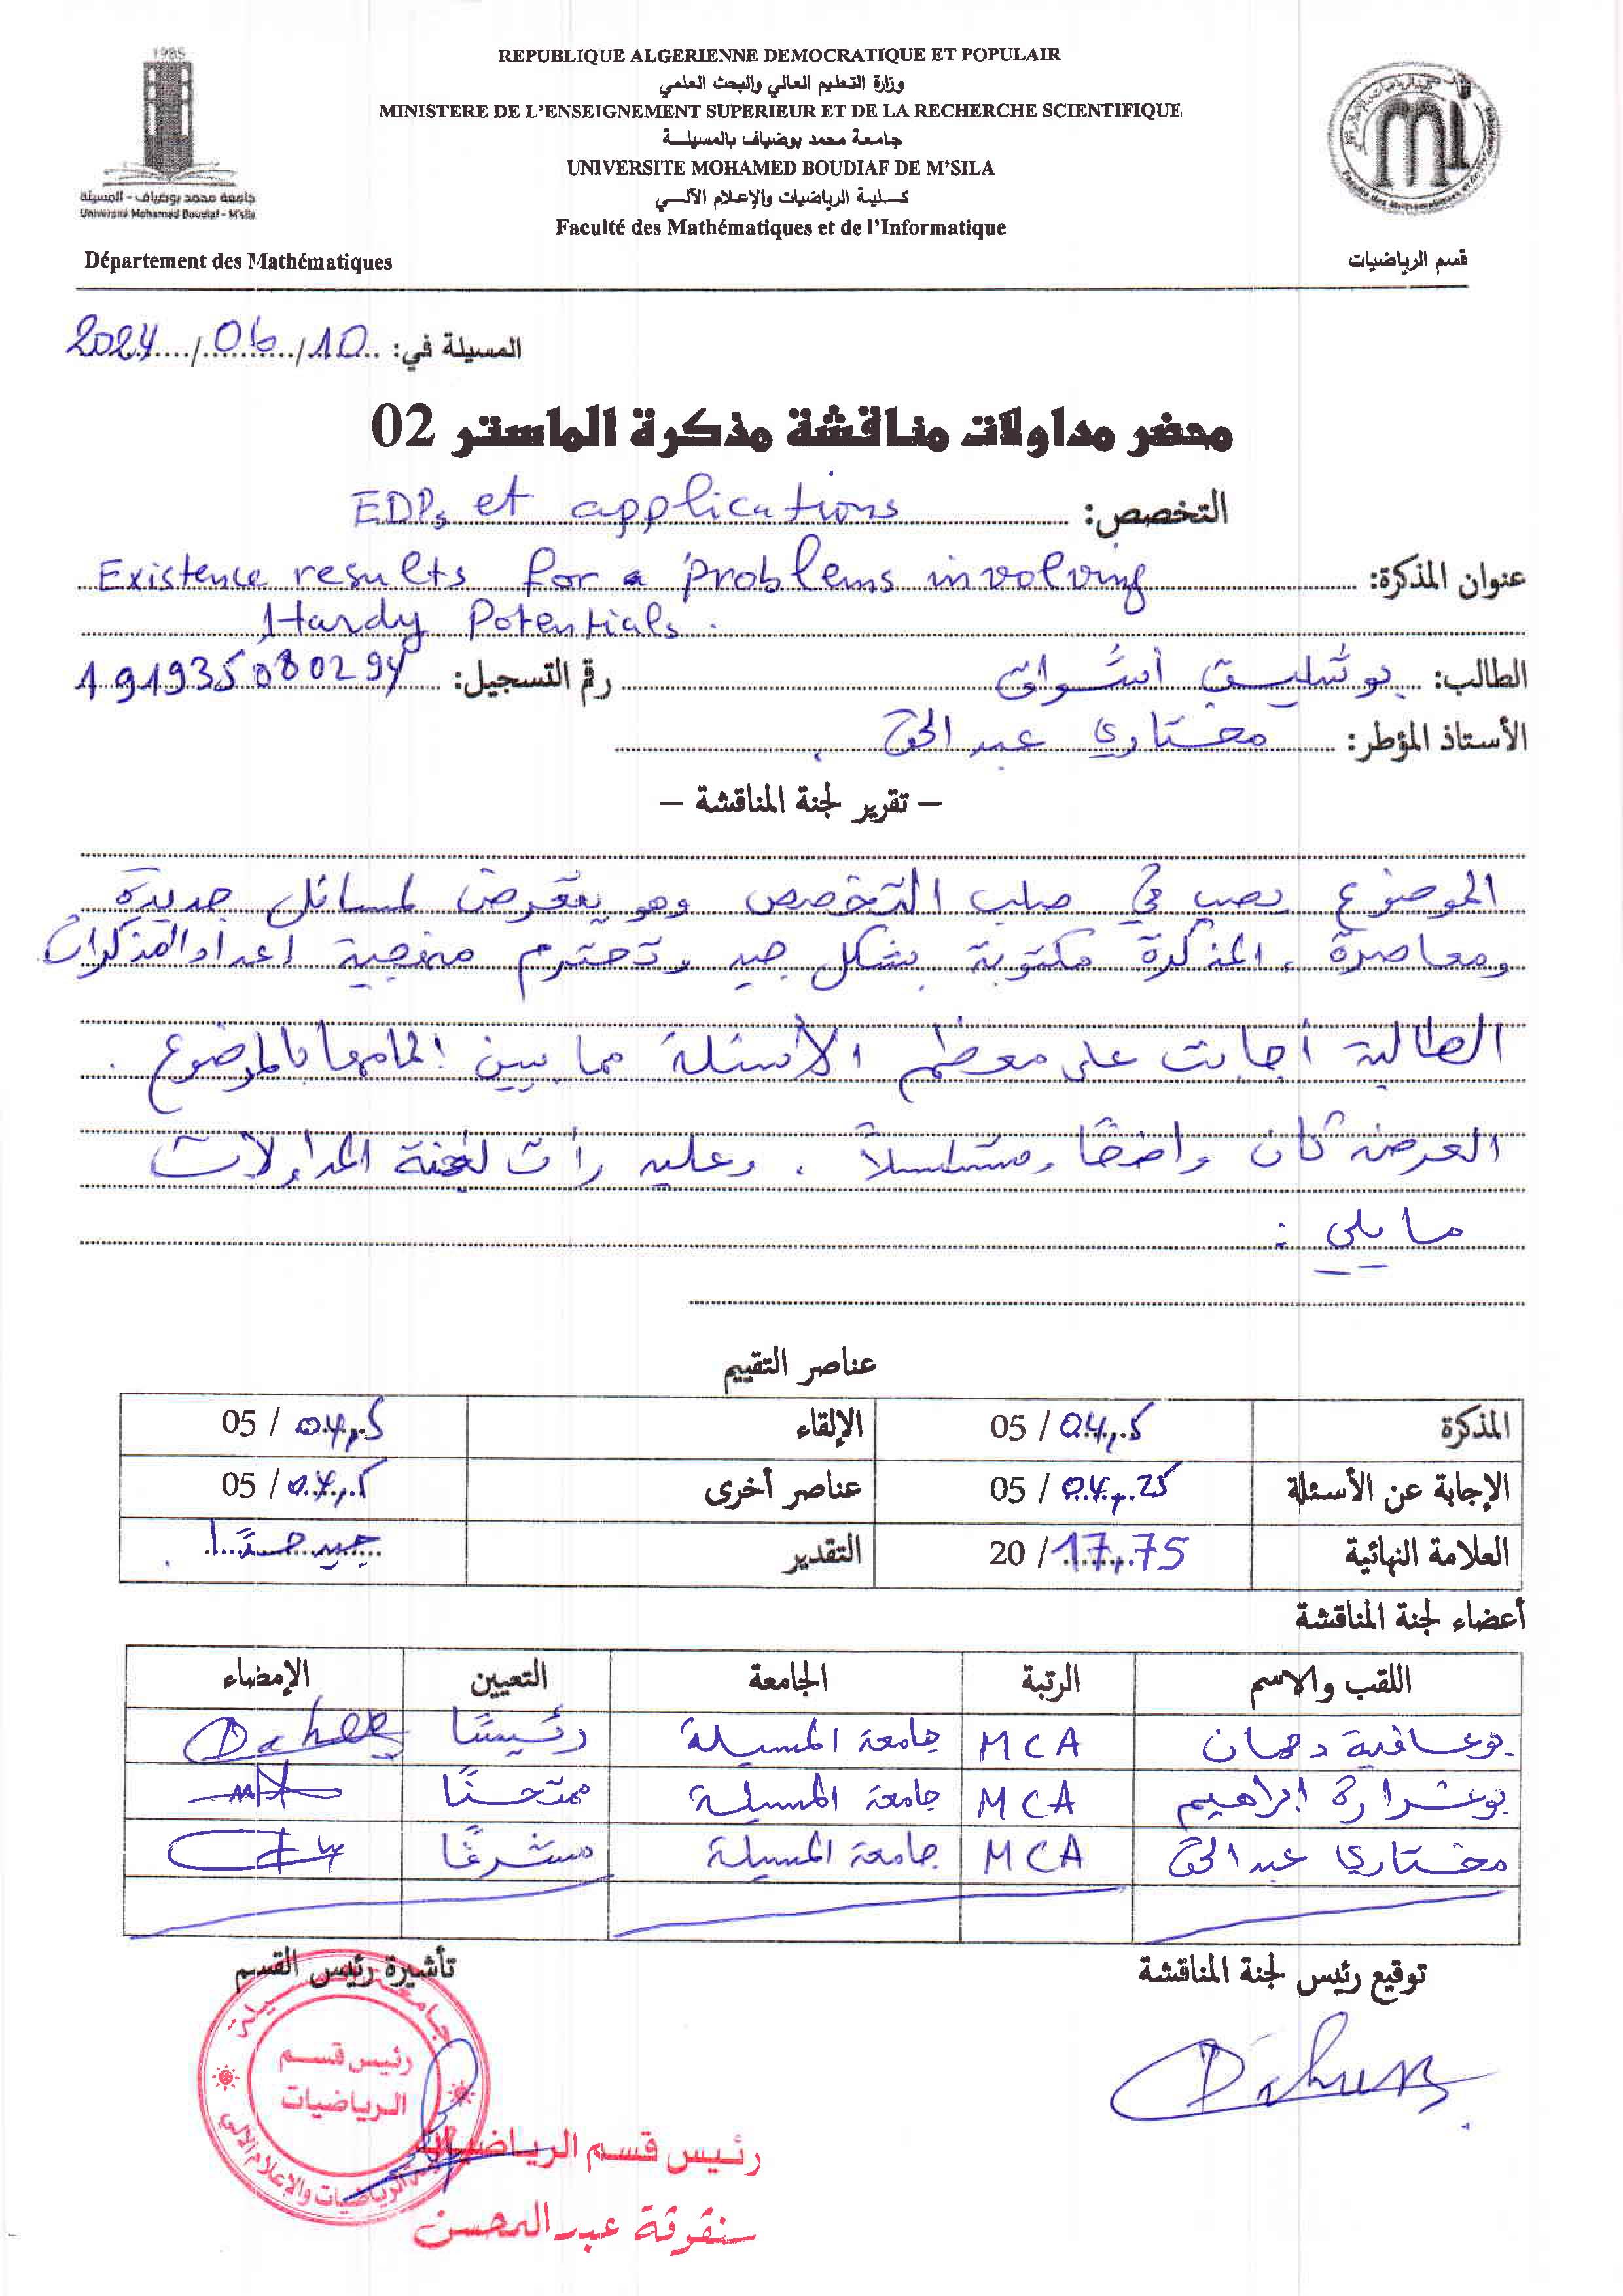 1985
جامعة محمد بوضياف - المسيلة
Université Mohamed Boudiaf - M'sila
REPUBLIQUE ALGERIENNE DEMOCRATIQUE ET POPULAIR
وزارة التعليم العالي والبحث العلمي
MINISTERE DE L'ENSEIGNEMENT SUPERIEUR ET DE LA RECHERCHE SCIENTIFIQUE
جامعة محمد بوضياف بالمسيلة
UNIVERSITE MOHAMED BOUDIAF DE M'SILA
كلية الرياضيات والإعلام الآلي
Faculté des Mathématiques et de l'Informatique
Département des Mathématiques
قسم الرياضيات
المسيلة في: 10/06/2024
محضر مداولات مناقشة مذكرة الماستر 02
التخصص: EDPs et applications
عنوان المذكرة: Existence results for a problems involving
Hardy Potentials.
الطالب: بوشليق أشواق رقم التسجيل: 191935080294
الأستاذ المؤطر: مختاري عبد الحق
– تقرير لجنة المناقشة –
الموضوع يصب في صلب التخصص وهو يتعرض لمسائل جديدة
ومعاصرة، المذكرة مكتوبة بشكل جيد وتحترم منهجية اعداد المذكرات.
الطالبة أجابت على معظم الأسئلة مما يبين إلمامها بالموضوع.
العرض كان واضحا ومتسلسلاً. وعليه رأت لجنة المداولات
ما يلي:
عناصر التقييم
المذكرة 04,5 / 05 الإلقاء 04,5 / 05
الإجابة عن الأسئلة 04,25 / 05 عناصر أخرى 04,5 / 05
العلامة النهائية 17,75 / 20 التقدير جيد جدًا.
أعضاء لجنة المناقشة
اللقب والاسم الرتبة الجامعة التعيين الإمضاء
بوعافية دحمان MCA جامعة المسيلة رئيسًا
بوغرارة ابراهيم MCA جامعة المسيلة ممتحنًا
مختاري عبد الحق MCA جامعة المسيلة مشرفًا
توقيع رئيس لجنة المناقشة
تأشيرة رئيس القسم
رئيس قسم
الرياضيات
رئيس قسم الرياضيات
سنقوقة عبد المحسن